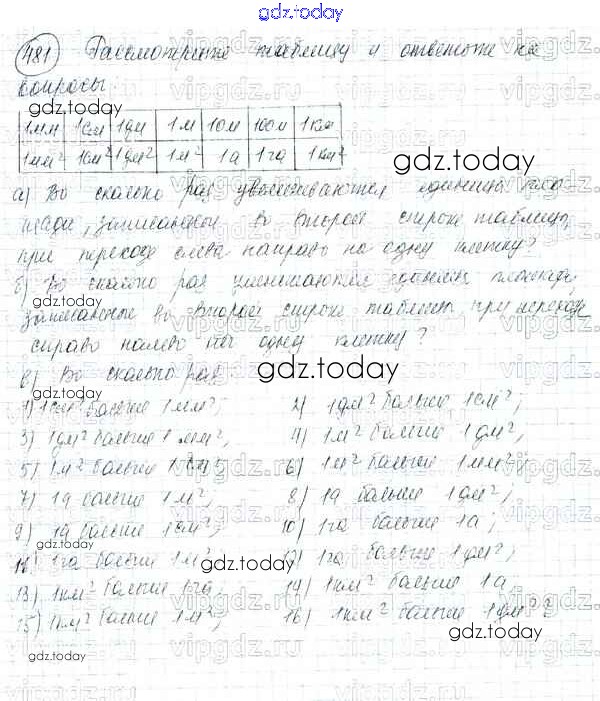 gdz.today
481 Рассмотрите таблицу и ответьте на
вопросы:
gdz.today
1мм 1см 1дм 1м 10м 100м 1км
1мм² 1см² 1дм² 1м² 1а 1га 1км²
gdz.today
а) Во сколько раз увеличиваются единицы пло
щади, записанные во второй строке таблицы,
при переходе слева направо на одну клетку?
б) Во сколько раз уменьшаются единицы площади,
gdz.today
записанные во второй строке таблицы, при переходе
справо налево на одну клетку?
в) Во сколько раз
gdz.today
1) 1см² больше 1мм²; 2) 1дм² больше 1см²;
3) 1дм² больше 1мм²; 4) 1м² больше 1дм²;
5) 1м² больше 1см²; 6) 1м² больше 1мм²;
7) 1а больше 1м²; 8) 1а больше 1дм²;
9) 1а больше 1см²; 10) 1га больше 1а;
gdz.today
11) 1га больше 1м²; 12) 1га больше 1дм²;
gdz.today
13) 1км² больше 1га; 14) 1км² больше 1а
15) 1км² больше 1м²; 16) 1км² больше 1дм²?
gdz.today
gdz.today